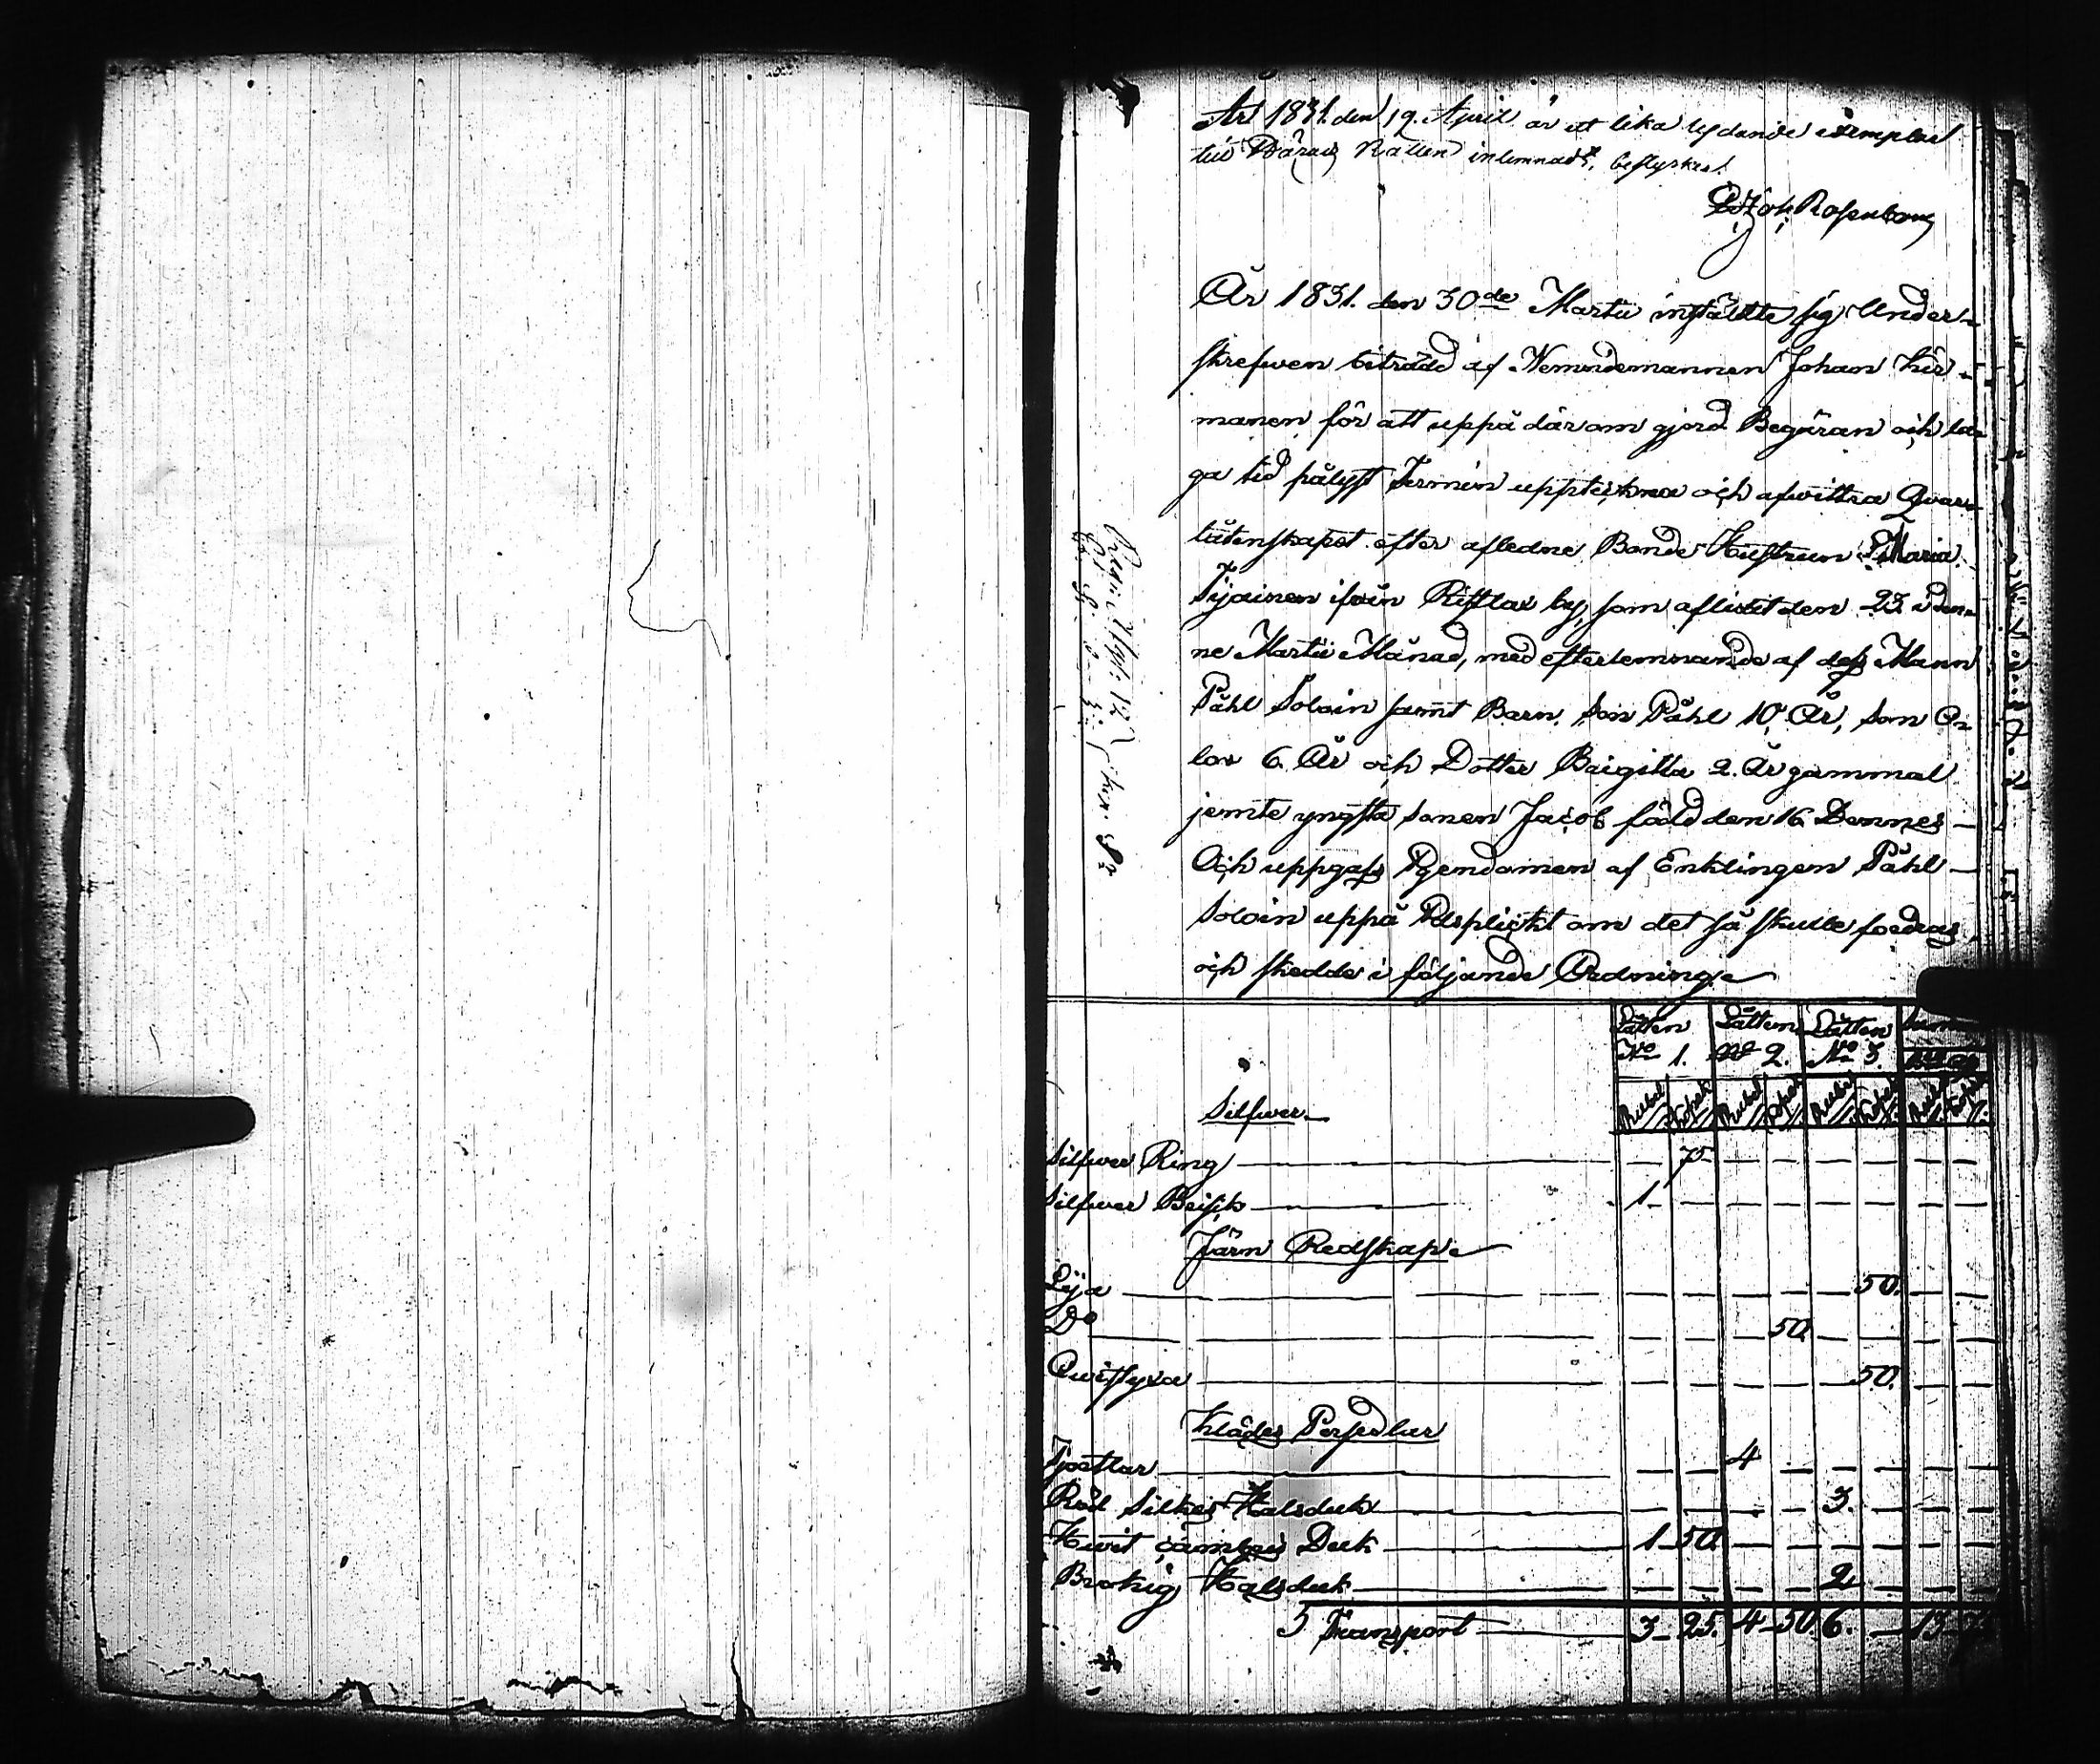 År 1831. den 19. April är ett lika lydande exemplar
till Härads Rätten inlemnadt, besyrkes.
Joh. Rosenborg
År 1831. den 30de Martii inställte sig Under-
skrefwen biträdd af Nemndemannen Johan
manen för att uppå därom gjord Begäran och la-
ga tid pålyst Termin upptekna och afwittra Qwar-
låtenskapet efter afledne Bonde Hustrun Maria
ifrån by, som aflidit den 23. i den-
ne Martii Månad, med efterlemnande af dess Mann
Påhl Soloin samt Barn. Son Påhl 10. År, Son O-
lov 6. År och Dotter Brigitta 2. År gammal
jemte yngsta sonen Jacob född den 16 Dennes —
Och uppgafs Egendomen af Enklingen Påhl —
Soloin uppå Edsplickt om det så skulle fordras
och skedde i följande Ordning
Lotten Lotten Lotten
No 1. No 2. No 3.
Rubel Kopek Rubel Kopek Rubel Kopek Rubel Kopek
Silfwer
Silfwer Ring — 75
Silfwer — 1
Järn Redskap
Lija — 50.
Do — 50
Qwistyxa — 50.
Klädes Persedlar
— 4
Röd Silkes Halsduk — 3.
Hwit Duk — 1 50
Brokig Halsduk — 2
Transport — 3 25. 4 50 6. — 13